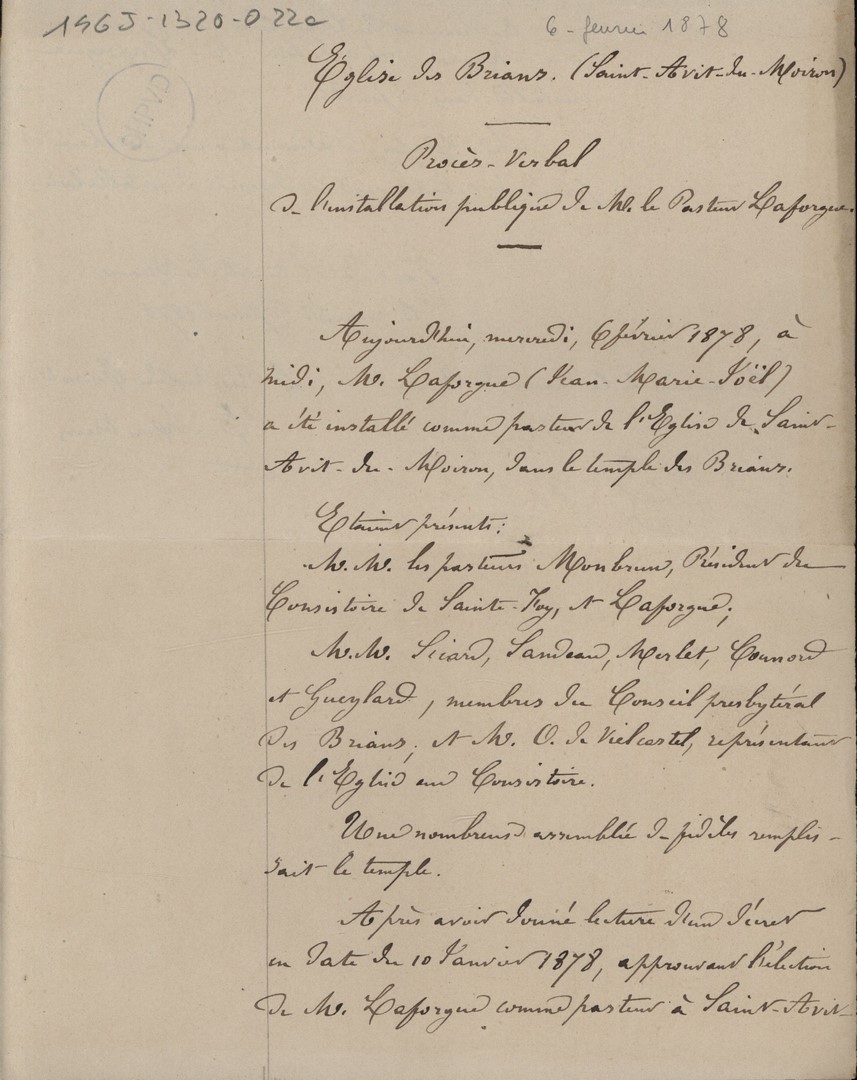 196J-1320-022c
6 - fevrier 1878
Église des Briands. (Saint-Avit-du-Moiron)
Procès-Verbal
de l'installation publique de M. le Pasteur Laforgue.
Aujourd'hui, mercredi, 6 février 1878, à
midi, M. Laforgue (Jean-Marie-Joël)
a été installé comme pasteur de l'Eglise de Saint-
Avit-du-Moiron, dans le temple des Briands.
Etaient présents:
M.M. les pasteurs Monbrun, Président du
Consistoire de Sainte-Foy, et Laforgue;
M.M. Sicard, Sandeau, Merlet, Counord
et Gueylard, membres du Conseil presbytéral
des Briands; et M. O. de Vielcastel, représentant
de l'Eglise au Consistoire.
Une nombreuse assemblée de fidèles remplis-
sait le temple.
Après avoir donné lecture d'un décret
en date du 10 Janvier 1878, approuvant l'élection
de M. Laforgue comme pasteur à Saint-Avit-